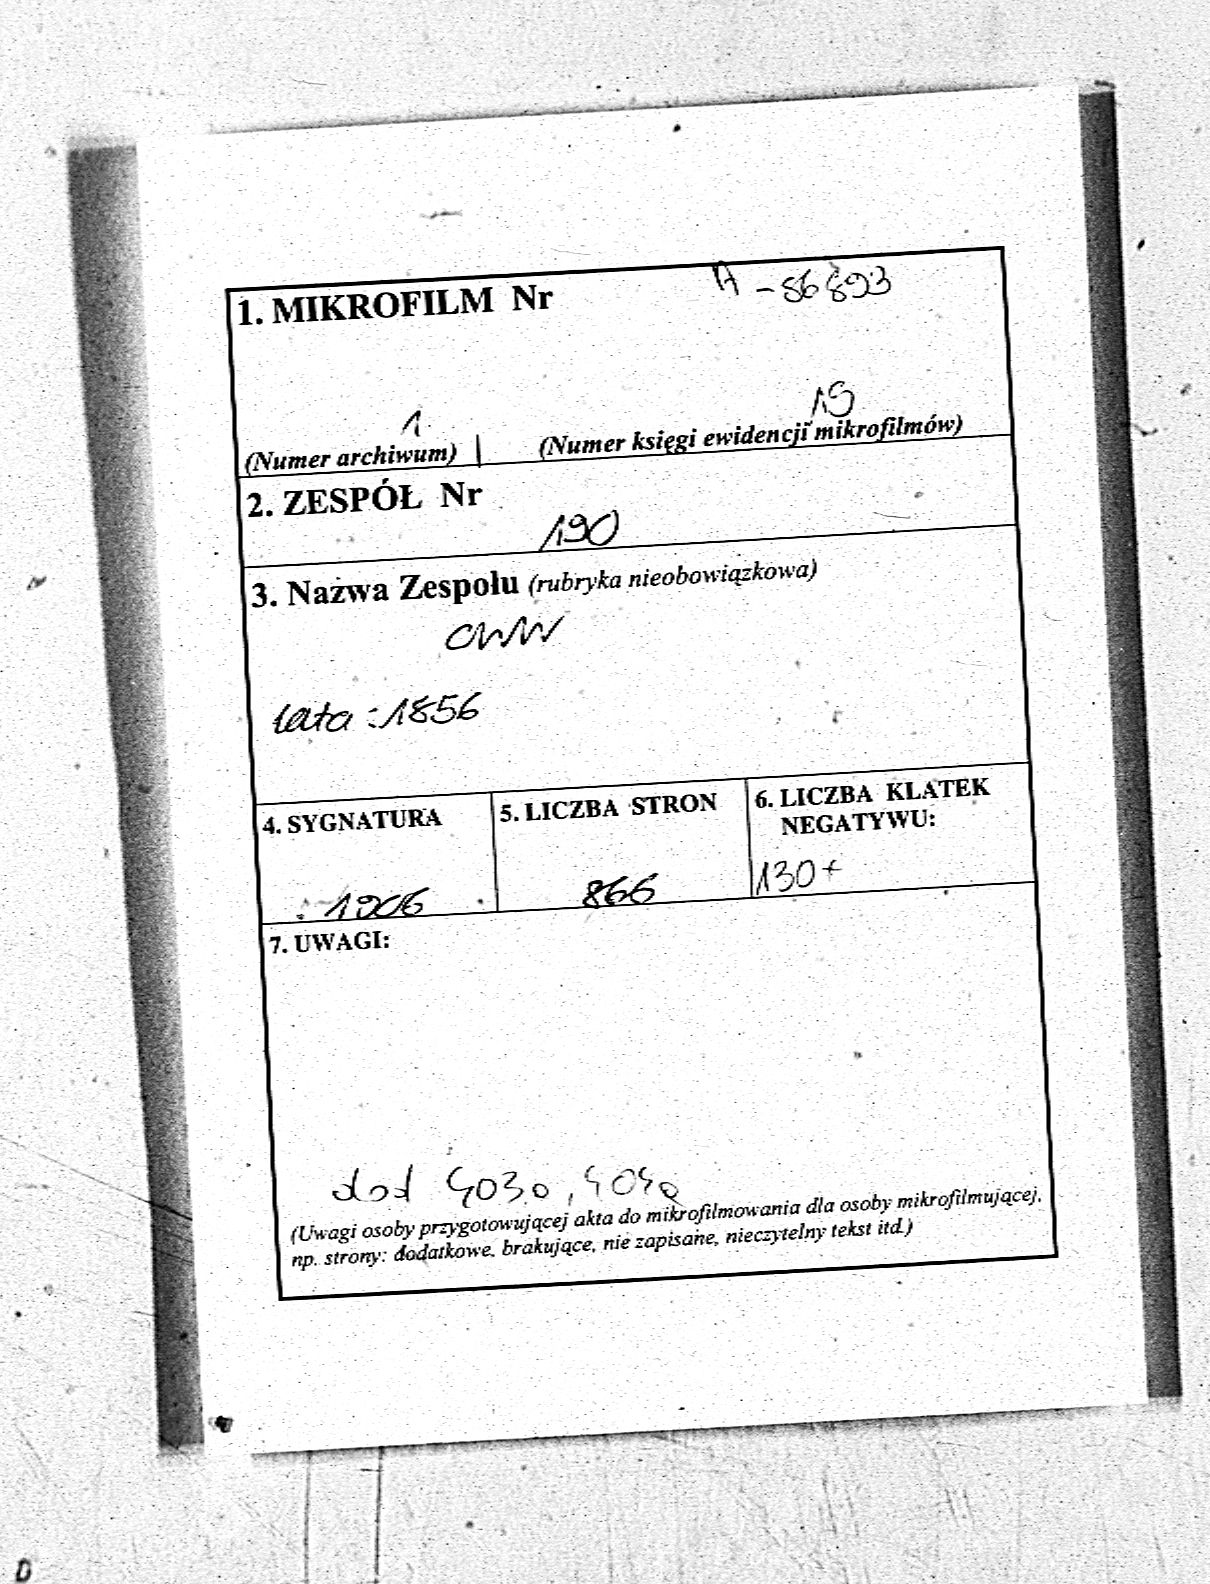 1. MIKROFILM Nr A - 86893
1 15
(Numer archiwum) (Numer księgi ewidencji mikrofilmów)
2. ZESPÓŁ Nr
190
3. Nazwa Zespołu (rubryka nieobowiązkowa)
CWW
lata : 1856
4. SYGNATURA 5. LICZBA STRON 6. LICZBA KLATEK
NEGATYWU:
1906 866 130+
7. UWAGI:
dod
(Uwagi osoby przygotowującej akta do mikrofilmowania dla osoby mikrofilmującej,
np. strony: dodatkowe, brakujące, nie zapisane, nieczytelny tekst itd.)
D